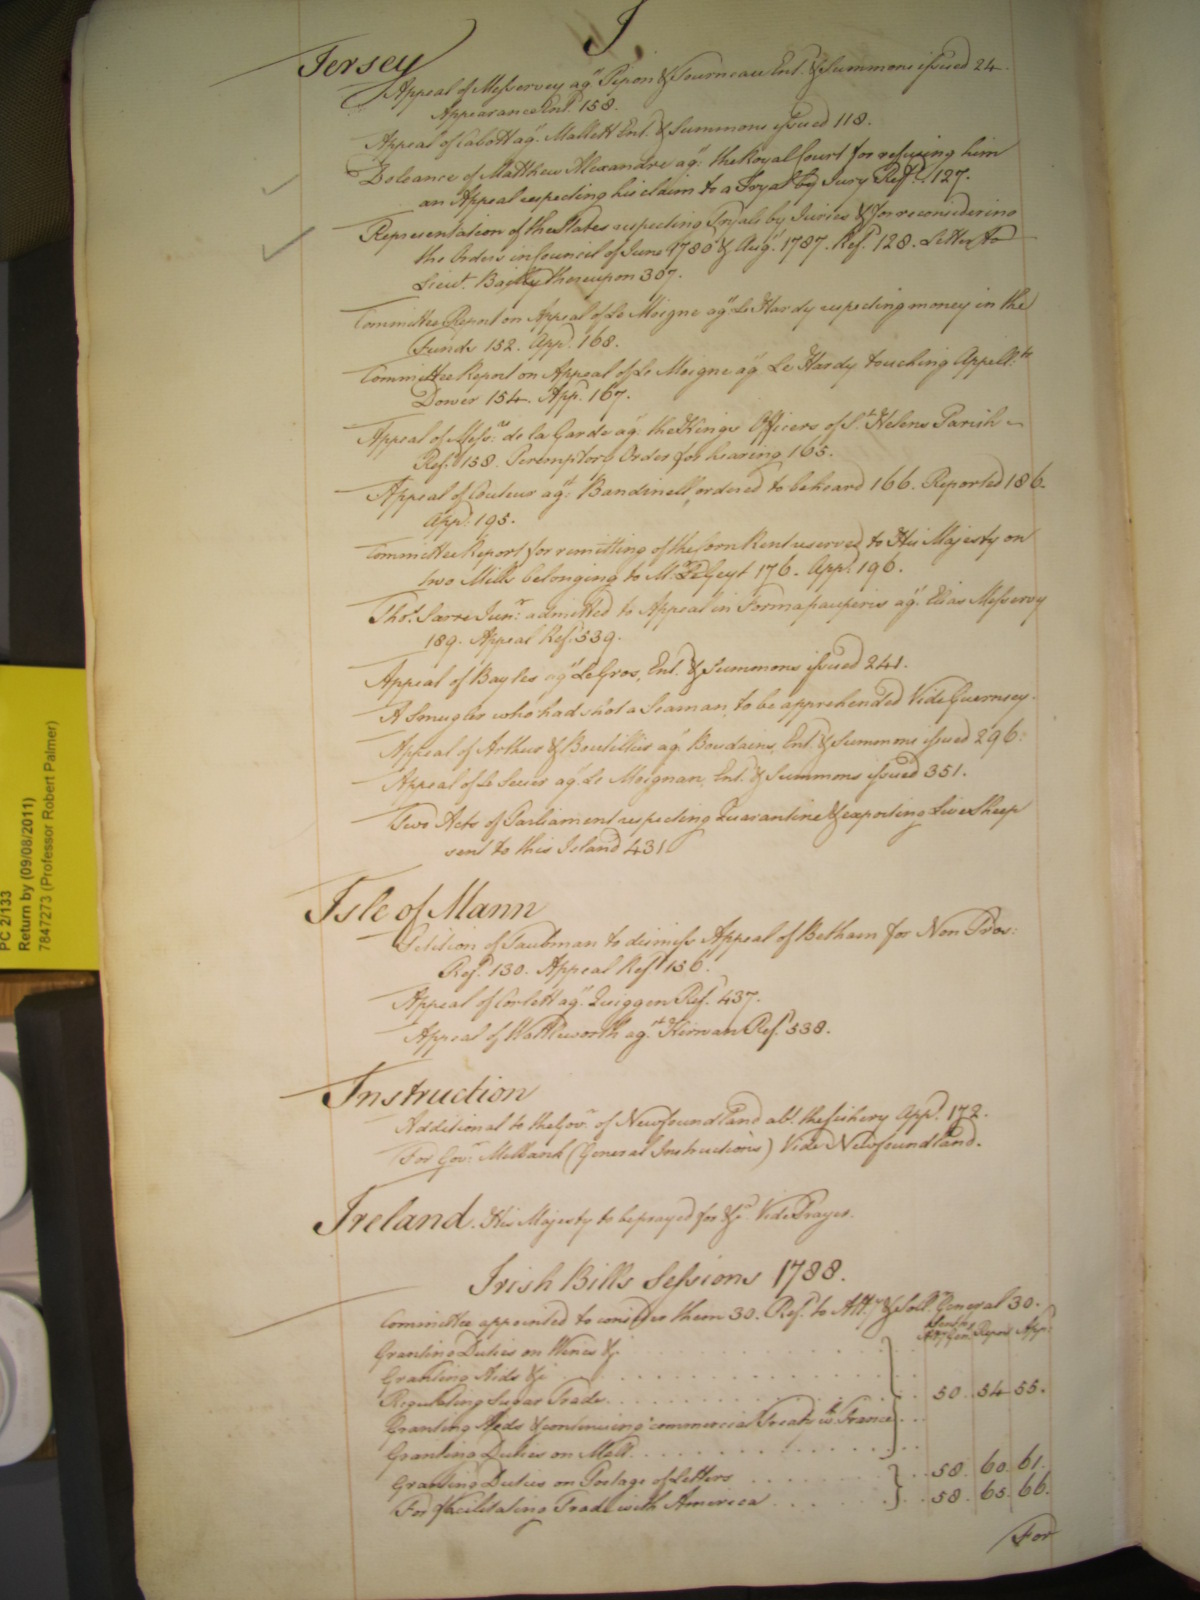 J
Jersey
Appeal of Messervey agt. Pipon & Journeaux Ent. & Summons issued 24.
Appearance Ent. 158.
Appeal of Cabott agt. Mallett Ent. & Summons issued 118.
Doleance of Matthew Alexandre agt. the Royal Court for refusing him
an Appeal respecting his claim to a Tryal by Jury Refd. 127.
Representation of the States respecting Tryals by Juries & for reconsidering
the Orders in Council of June 1786 & Augt. 1787. Refd. 128. Letter to
Lieut. Bailly thereupon 307.
Committee Report on Appeal of Le Moigne agt. Le Hardy respecting money in the
Funds 152. Appd. 168.
Committee Report on Appeal of Le Moigne agt. Le Hardy touching Appellts.
Dower 154. Appd. 167.
Appeal of Messrs. de la Garde agt. the Kings Officers of St. Helens Parish
Refd. 158. Peremptory Order for hearing 165.
Appeal of Couteur agt. Bandinell, ordered to be heard 166. Reported 186.
Appd. 195.
Committee Report for remitting of the Corn Rent reserved to His Majesty on
two Mills belonging to Mr. Le Geyt 176. Appd. 196.
Thos. Sarre Junr. admitted to Appeal in Forma pauperis agt. Elias Messervy
189. Appeal Refd. 539.
Appeal of Bayles agt. Le Gros, Ent. & Summons issued 241.
A Smugler who had shot a Seaman, to be apprehended Vide Guernsey.
Appeal of Arthur & Boutillier agt. Boudains, Ent. & Summons issued 296.
Appeal of Le Sueur agt. Le Moignan, Ent. & Summons issued 351.
Two Acts of Parliament respecting Quarantine & exporting Live Sheep
sent to this Island 431.
Isle of Mann
Petition of Taubman to dismiss Appeal of Betham for Non Pros:
Refd. 130. Appeal Refd. 156.
Appeal of Corlett agt. Quiggen Refd. 437.
Appeal of Wattleworth agt. Kirwan Refd. 538.
Instruction
Additional to the Govr. of Newfoundland abt. the fishery Appd. 172.
For Govr. Milbank (General Instructions) Vide Newfoundland.
Ireland. His Majesty to be prayed for &c. Vide Prayer.
Irish Bills Sessions 1788.
Committee appointed to consider them 30. Refd. to Atty. & Sollr. General 30.
Atty. Gen. Report Appd.
Granting Duties on Wines &c.
Granting Aids &c.
Regulating Sugar Trade. 50. 54. 55.
Granting Aids & continuing commercial Treaty with France
Granting Duties on Malt
Granting Duties on Postage of Letters 58. 60. 61.
For facilitating Trade with America 58. 65. 66.
For
PC 2/133
Return by (09/08/2011)
7847273 (Professor Robert Palmer)